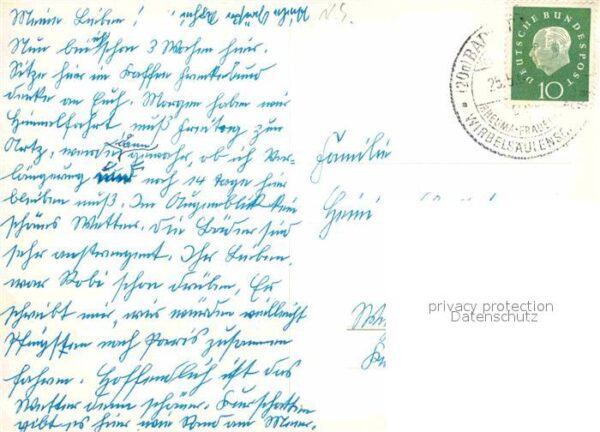 Meine Lieben!
N.S.
Nun bin ich schon 3 Wochen hier.
Sitze hier im Kaffee Frankobund
denke an Euch. Morgen haben wir
Himmelfahrt muß Freitag zum
Arzt, werde dann gewahr, ob ich Ver-
längerung und noch 14 Tage hier
bleiben muß. Im Augenblick kein
schönes Wetter. Die Bäder sind
sehr anstrengend. Ihr Lieben,
war Robi schon drüben. Er
schreibt mir, wir würden vielleicht
Pfingsten nach Paris zusammen
fahren. Hoffendlich ist das
Wetter dann schöner. Kurschatten
gibt es hier wie Sand am Meer.
Familie
Heini
DEUTSCHE BUNDESPOST
10
(20a) BAD
25.5
RHEUMA-FRAUEN
WIRBELSÄULENSC
privacy protection
Datenschutz